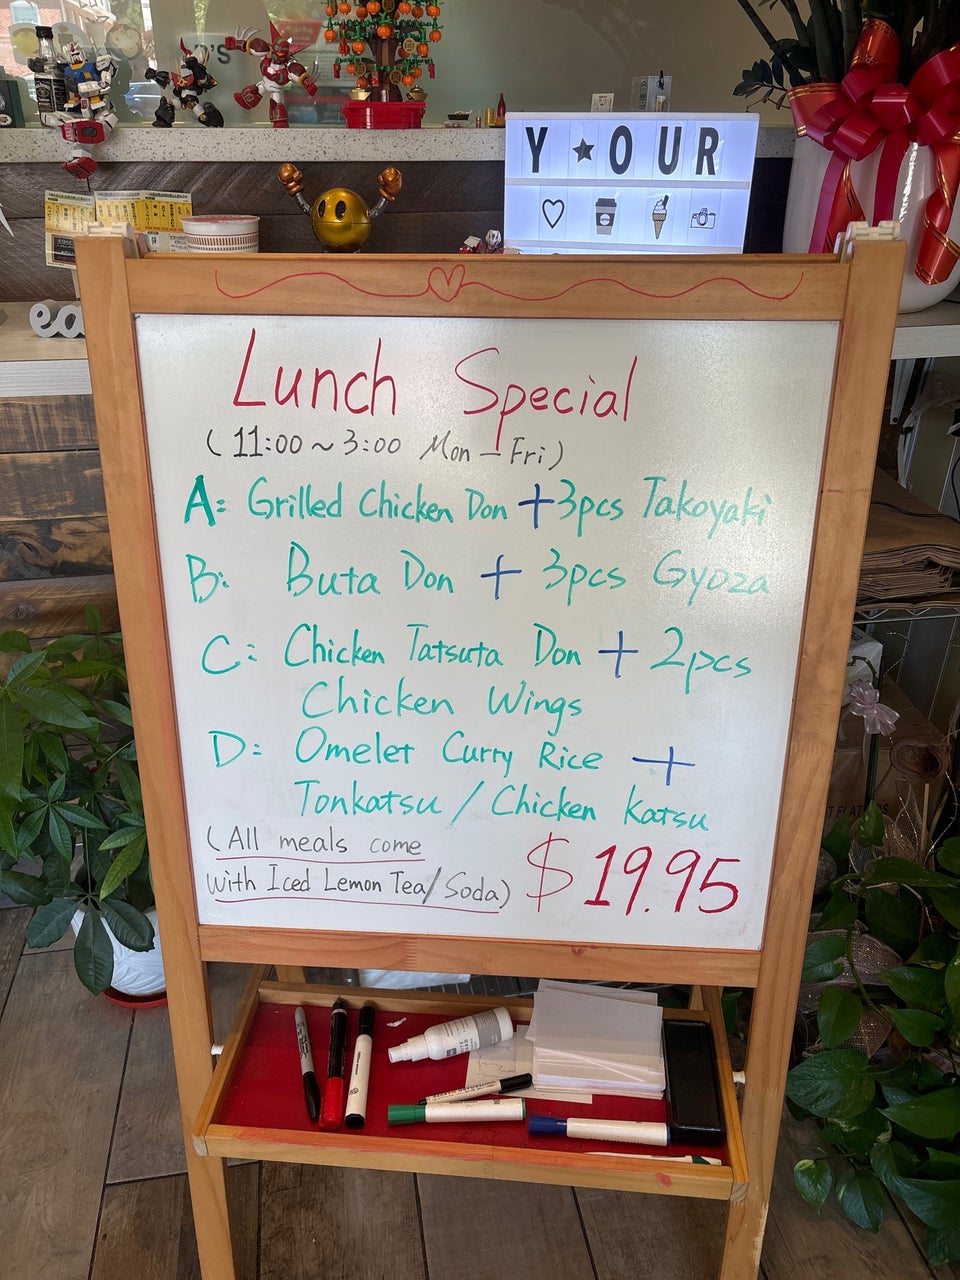 Y★OUR
ea
Lunch Special
(11:00~3:00 Mon-Fri)
A: Grilled Chicken Don +3pcs Takoyaki
B: Buta Don + 3pcs Gyoza
C: Chicken Tatsuta Don + 2pcs
Chicken Wings
D: Omelet Curry Rice +
Tonkatsu / Chicken Katsu
(All meals come
with Iced Lemon Tea/Soda)
$19.95